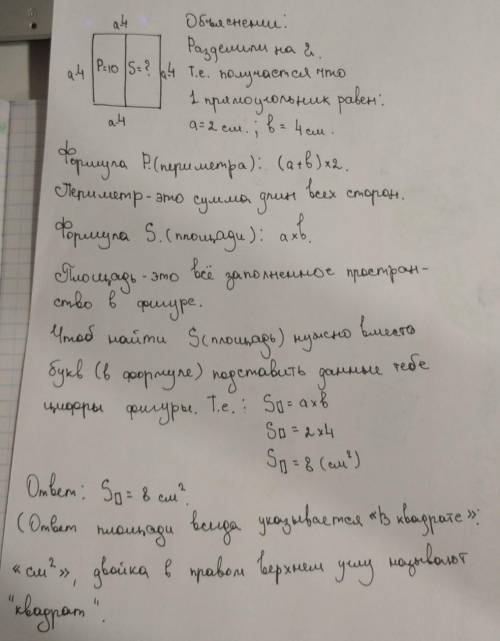 a4
a4 P=10 S=? a4
a4
Объяснении:
Разделили на 2.
Т.е. получается что
1 прямоугольник равен:
a=2 см.; b=4 см.
Формула P.(периметра): (a+b)×2.
Периметр-это сумма длин всех сторон.
Формула S.(площади): a×b.
Площадь-это всё заполненное простран-
ство в фигуре.
Чтоб найти S(площадь) нужно вместо
букв (в формуле) подставить данные тебе
цифры фигуры. Т.е.: S▯=a×b
S▯=2×4
S▯=8 (см²)
Ответ: S▯=8 см².
(Ответ площади всегда указывается «В квадрате»:
«см²», двойка в правом верхнем углу называют
"квадрат".